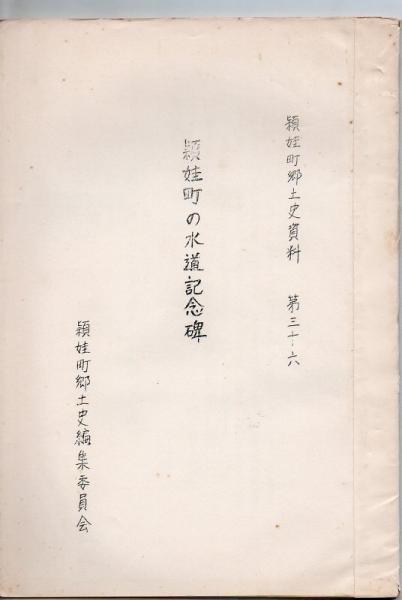 頴娃町郷土史資料 第三十六
頴娃町の水道記念碑
頴娃町郷土史編集委員会